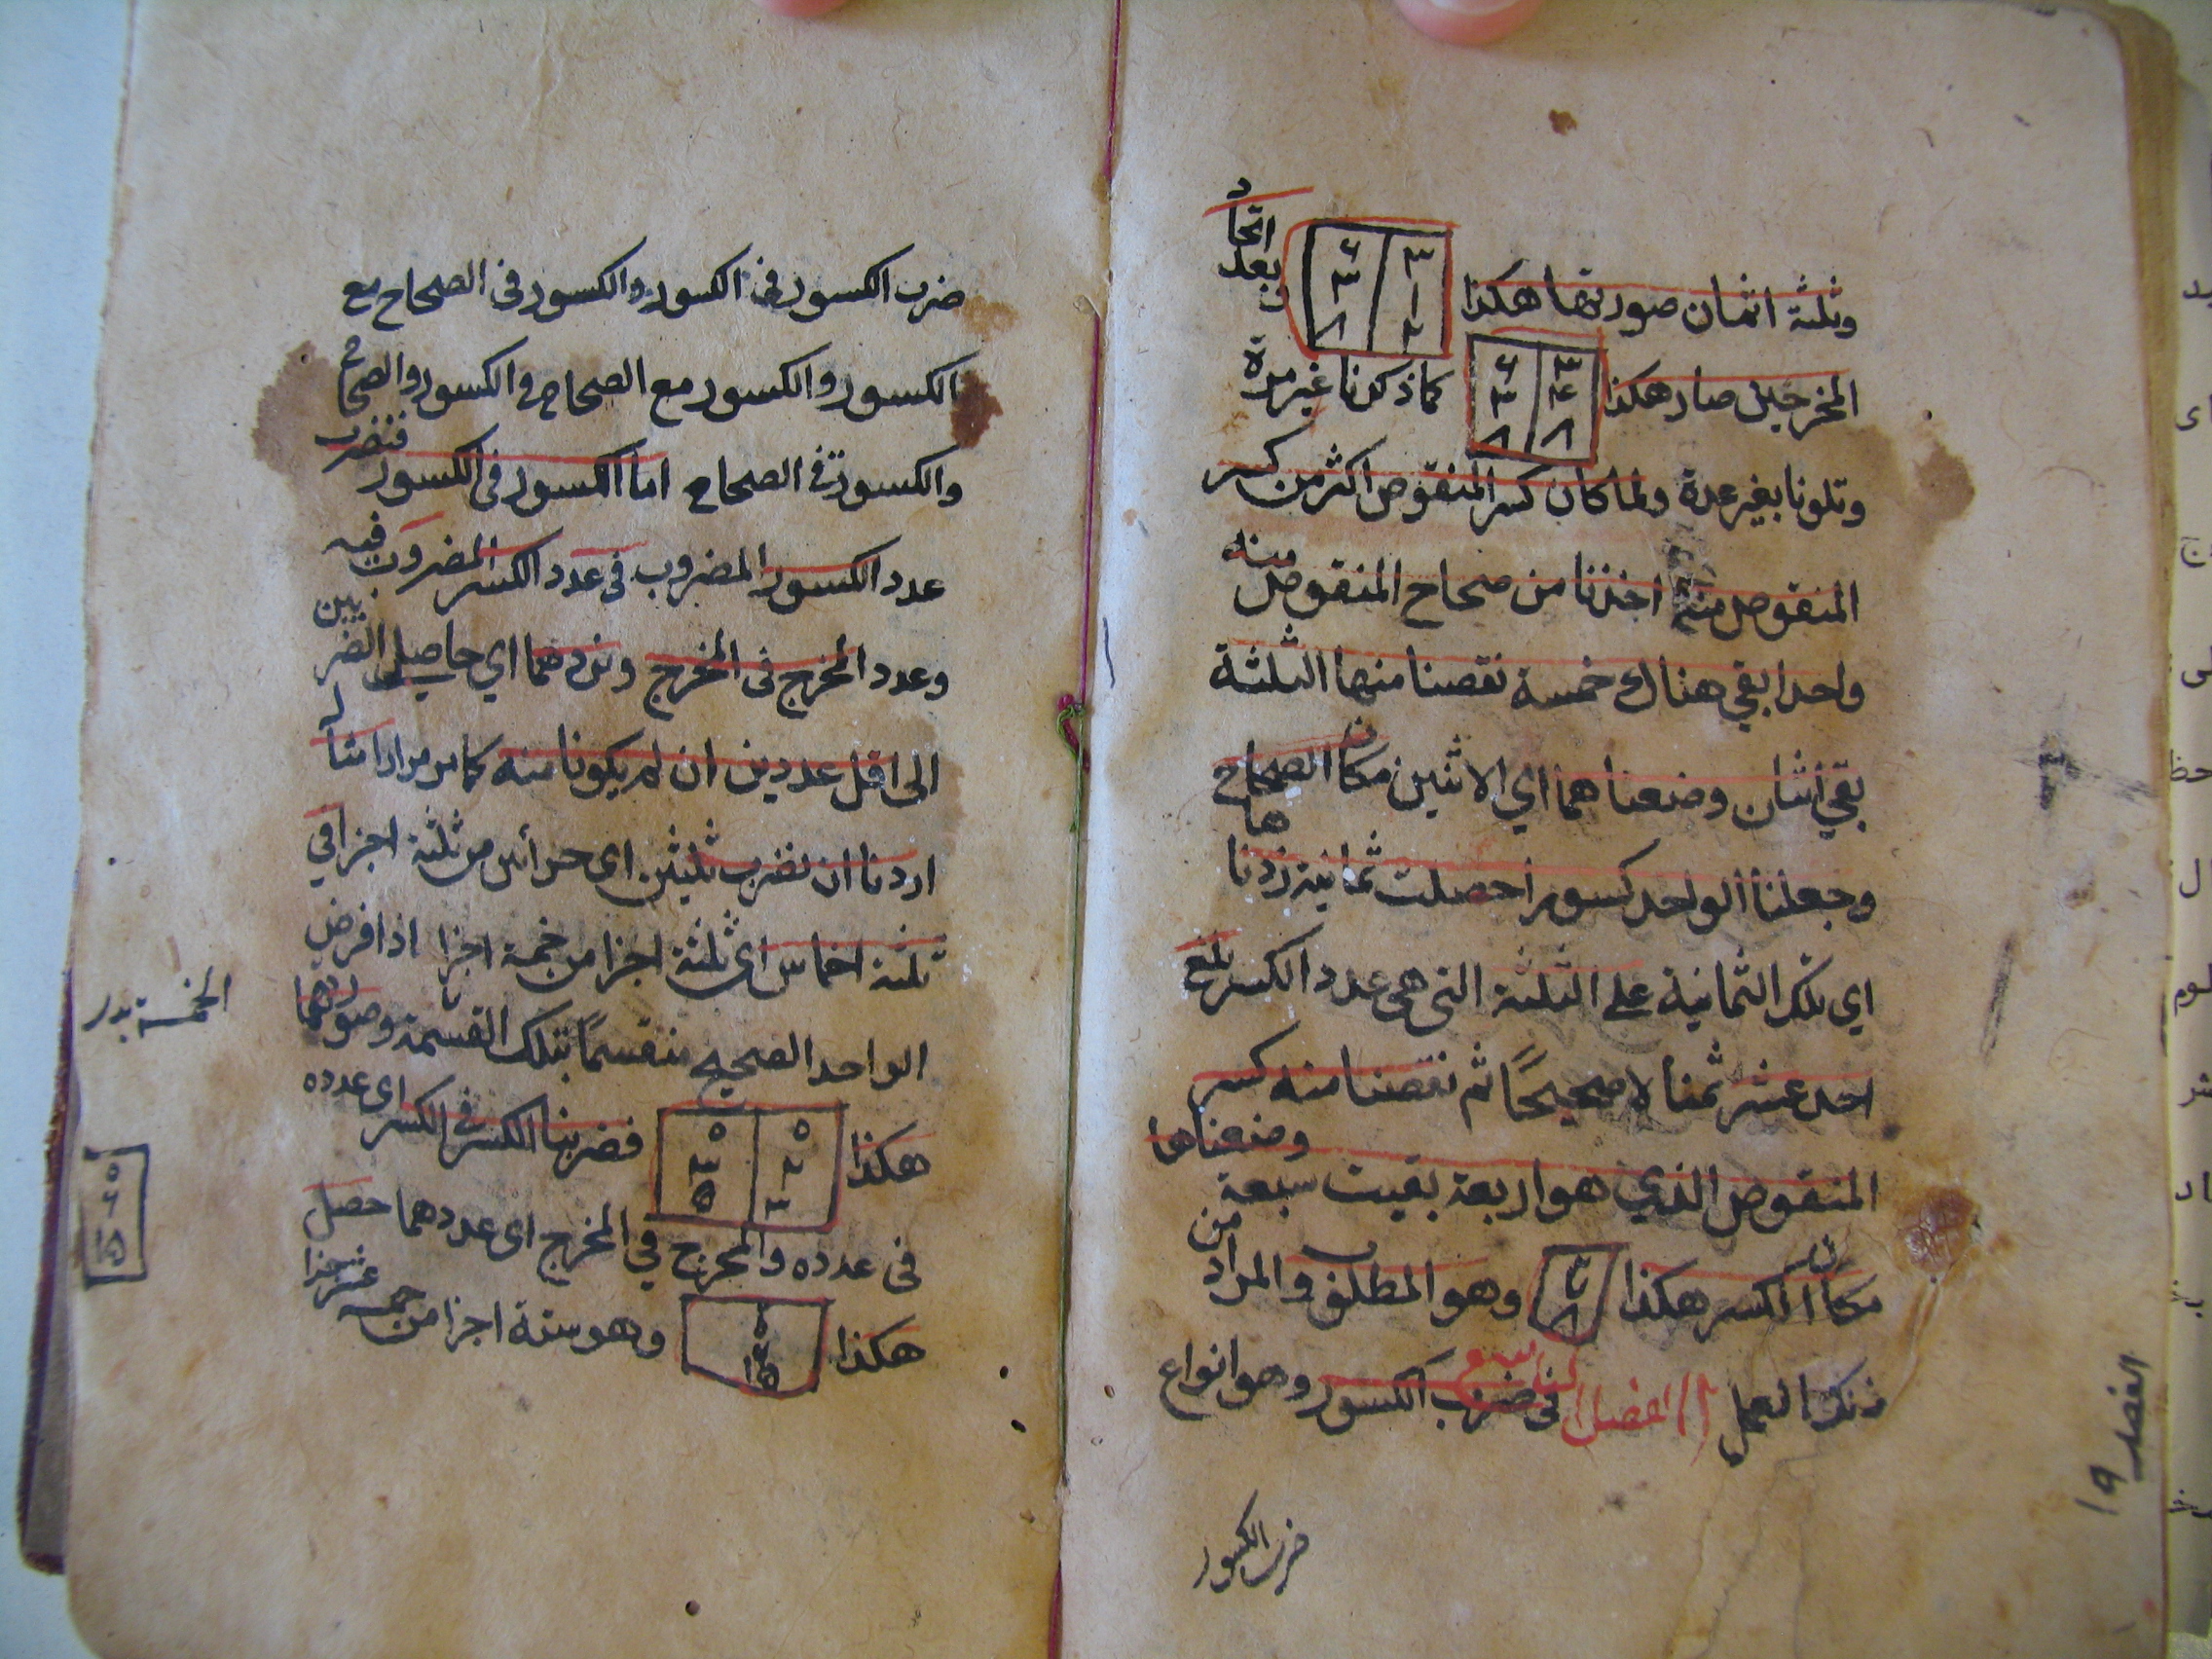 وثلثة اثمان صورتها هكذا ٣ ١ ٢ ٦ ٣ ٨ بعد اتحاد
المخرجين صار هكذا ٣ ٤ ٨ ٦ ٣ ٨ كما ذكرنا غير مرة
وتلونا بغير عدة ولما كان كسر المنقوص اكثر من كسر
المنقوص منه اخذنا من صحاح المنقوص منه
واحدا بقي هناك خمسة نقصنا منها الثلثة
بقي اثنان وضعناهما اي الاثنين مكان الصحاح
وجعلنا الواحد كسورا حصلت ثمانية زدناها
اي تلك الثمانية على الثلثة التي هي عدد الكسر بلغ
احد عشر ثمنا لا صحيحًا ثم نقصنا منه كسر
المنقوص الذي هو اربعة بقيت سبعة وضعناها
مكان الكسر هكذا وهو المطلق والمراد من
ذلك العمل الفصل السابع في ضرب الكسور وهو انواع
ضرب الكسور
الفصل
١٩
ضرب الكسور في الكسور والكسور في الصحاح مع
الكسور والكسور مع الصحاح في الكسور والصحاح
والكسور في الصحاح اما الكسور في الكسور فنضرب
عدد الكسور المضروب في عدد الكسر المضروب فيه
وعدد المخرج في المخرج ونردهما اي حاصلي الضربين
الى اقل عددين ان لم يكونا منه كما مر مرارا مثاله
اردنا ان نضرب ثلثين اي جزأين من ثلثة اجزا في
ثلثة اخماس اي ثلثة اجزا من خمسة اجزا اذا فرض
الواحد الصحيح منقسمًا بتلك القسمة وصورتهما
هكذا ٥ ٢ ٣ ٥ ٣ ٥ فضربنا الكسر في الكسر اي عدده
في عدده والمخرج في المخرج اي عددهما حصل
هكذا ٦ ١٥ وهو ستة اجزا من خمسة عشر جزا